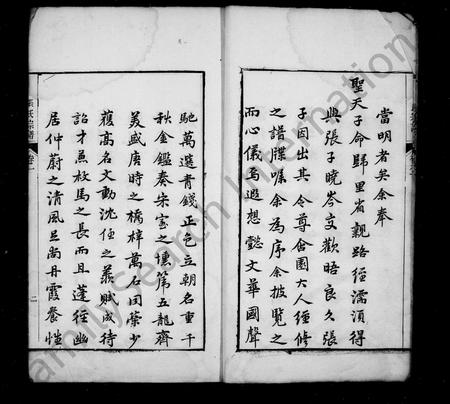 當明者矣余奉
聖天子命歸里省親路經濡須得
與張子曉岑交歡晤良久張
子因出其 令尊含園六人經修
之譜牒囑余為序余披覽之
而心儀焉遐想懿文華國聲
馳萬選青錢正色立朝名重千
秋金鑑奏宋室之壎箎五龍齊
美盛唐時之楠梓萬石同榮少
獲高名文動沈侄之羨賦成待
詔才魚枚馬之長而且蓬徑幽
居仲蔚之清風足尚丹霞養愷
張氏宗譜
卷一
二
FamilySearch International